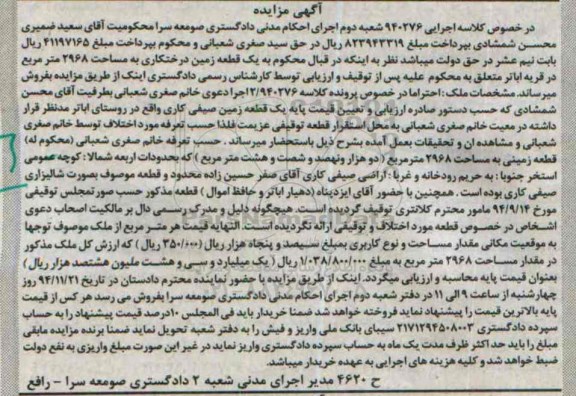 آگهی مزایده
در خصوص کلاسه اجرایی ۹۴۰۲۷۶ شعبه دوم اجرای احکام مدنی دادگستری صومعه سرا محکومیت آقای سعید ضمیری
محسن شمشادی بپرداخت مبلغ ۸۲۳۹۴۳۳۱۹ ریال در حق سید صغری شعبانی و محکوم بپرداخت مبلغ ۴۱۱۹۷۱۶۵ ریال
بابت نیم عشر در حق دولت میباشد نظر به اینکه در قبال محکوم به یک قطعه زمین درختکاری به مساحت ۲۹۶۸ متر مربع
در قریه اباتر متعلق به محکوم علیه پس از توقیف و ارزیابی توسط کارشناس رسمی دادگستری اینک از طریق مزایده بفروش
میرساند. مشخصات ملک: احتراما در خصوص پرونده کلاسه ۲/۹۴۰۲۷۶ اجرا دعوی خانم صغری شعبانی بطرفیت آقای محسن
شمشادی که حسب دستور صادره ارزیابی و تعیین قیمت پایه یک قطعه زمین صیفی کاری واقع در روستای اباتر مدنظر قرار
داشته در معیت خانم صغری شعبانی به محل استقرار قطعه توقیفی عزیمت فلذا حسب تعرفه مورد اختلاف توسط خانم صغری
شعبانی و مشاهده ان و تحقیقات بعمل آمده بشرح ذیل باستحضار میرساند . حسب تعرفه خانم صغری شعبانی (محکوم له)
قطعه زمینی به مساحت ۲۹۶۸ مترمربع ( دو هزار ونهصد و شصت و هشت متر مربع ) که بحدودات اربعه شمالا: کوچه عمومی
استخر جنوبا: به حریم رودخانه و غربا: اراضی صیفی کاری آقای صفر حسین زاده محدود و قطعه موصوف بصورت شالیزاری
صیفی کاری بوده است . همچنین با حضور آقای ایزدپناه (دهیار اباتر و حافظ اموال ) قطعه مذکور حسب صورتمجلس توقیفی
مورخ ۹۴/۹/۱۴ مامور محترم کلانتری توقیف گردیده است. هیچگونه دلیل و مدرک رسمی دال بر مالکیت اصحاب دعوی
اشخاص در خصوص قطعه مورد اختلاف و توقیفی ارائه نگردیده است. النهایه قیمت هر متر مربع از ملک موصوف توجها
به موقعیت مکانی مقدار مساحت و نوع کاربری بمبلغ سیصد و پنجاه هزار ریال (۳۵۰/۰۰۰ ریال ) که ارزش کل ملک مذکور
در مقدار مساحت ۲۹۶۸ متر مربع به مبلغ ۱/۰۳۸/۸۰۰/۰۰۰ ریال ( یک میلیارد و سی و هشت ملیون هشتصد هزار ریال )
بعنوان قیمت پایه محاسبه و ارزیابی میگردد. اینک از طریق مزایده با حضور نماینده محترم دادستان در تاریخ ۹۴/۱۱/۲۱ روز
چهارشنبه از ساعت ۹ الی ۱۱ در دفتر شعبه دوم اجرای احکام مدنی دادگستری صومعه سرا بفروش می رسد هر کس از قیمت
پایه بالاترین قیمت را پیشنهاد نماید فروخته خواهد شد ضمنا خریدار باید فی المجلس ۱۰درصد قیمت پیشنهاد را به حساب
سپرده دادگستری ۲۱۷۱۲۹۴۵۰۸۰۰۳ سیبای بانک ملی واریز و فیش را به دفتر شعبه تحویل نماید ضمنا برنده مزایده مابقی
مبلغ را باید حد اکثر ظرف مدت یک ماه به حساب سپرده دادگستری واریز نماید در غیر این صورت مبلغ واریزی به نفع دولت
ضبط خواهد شد و کلیه هزینه های اجرایی به عهده خریدار میباشد.
ح ۴۶۲۰ مدیر اجرای مدنی شعبه ۲ دادگستری صومعه سرا – رافع